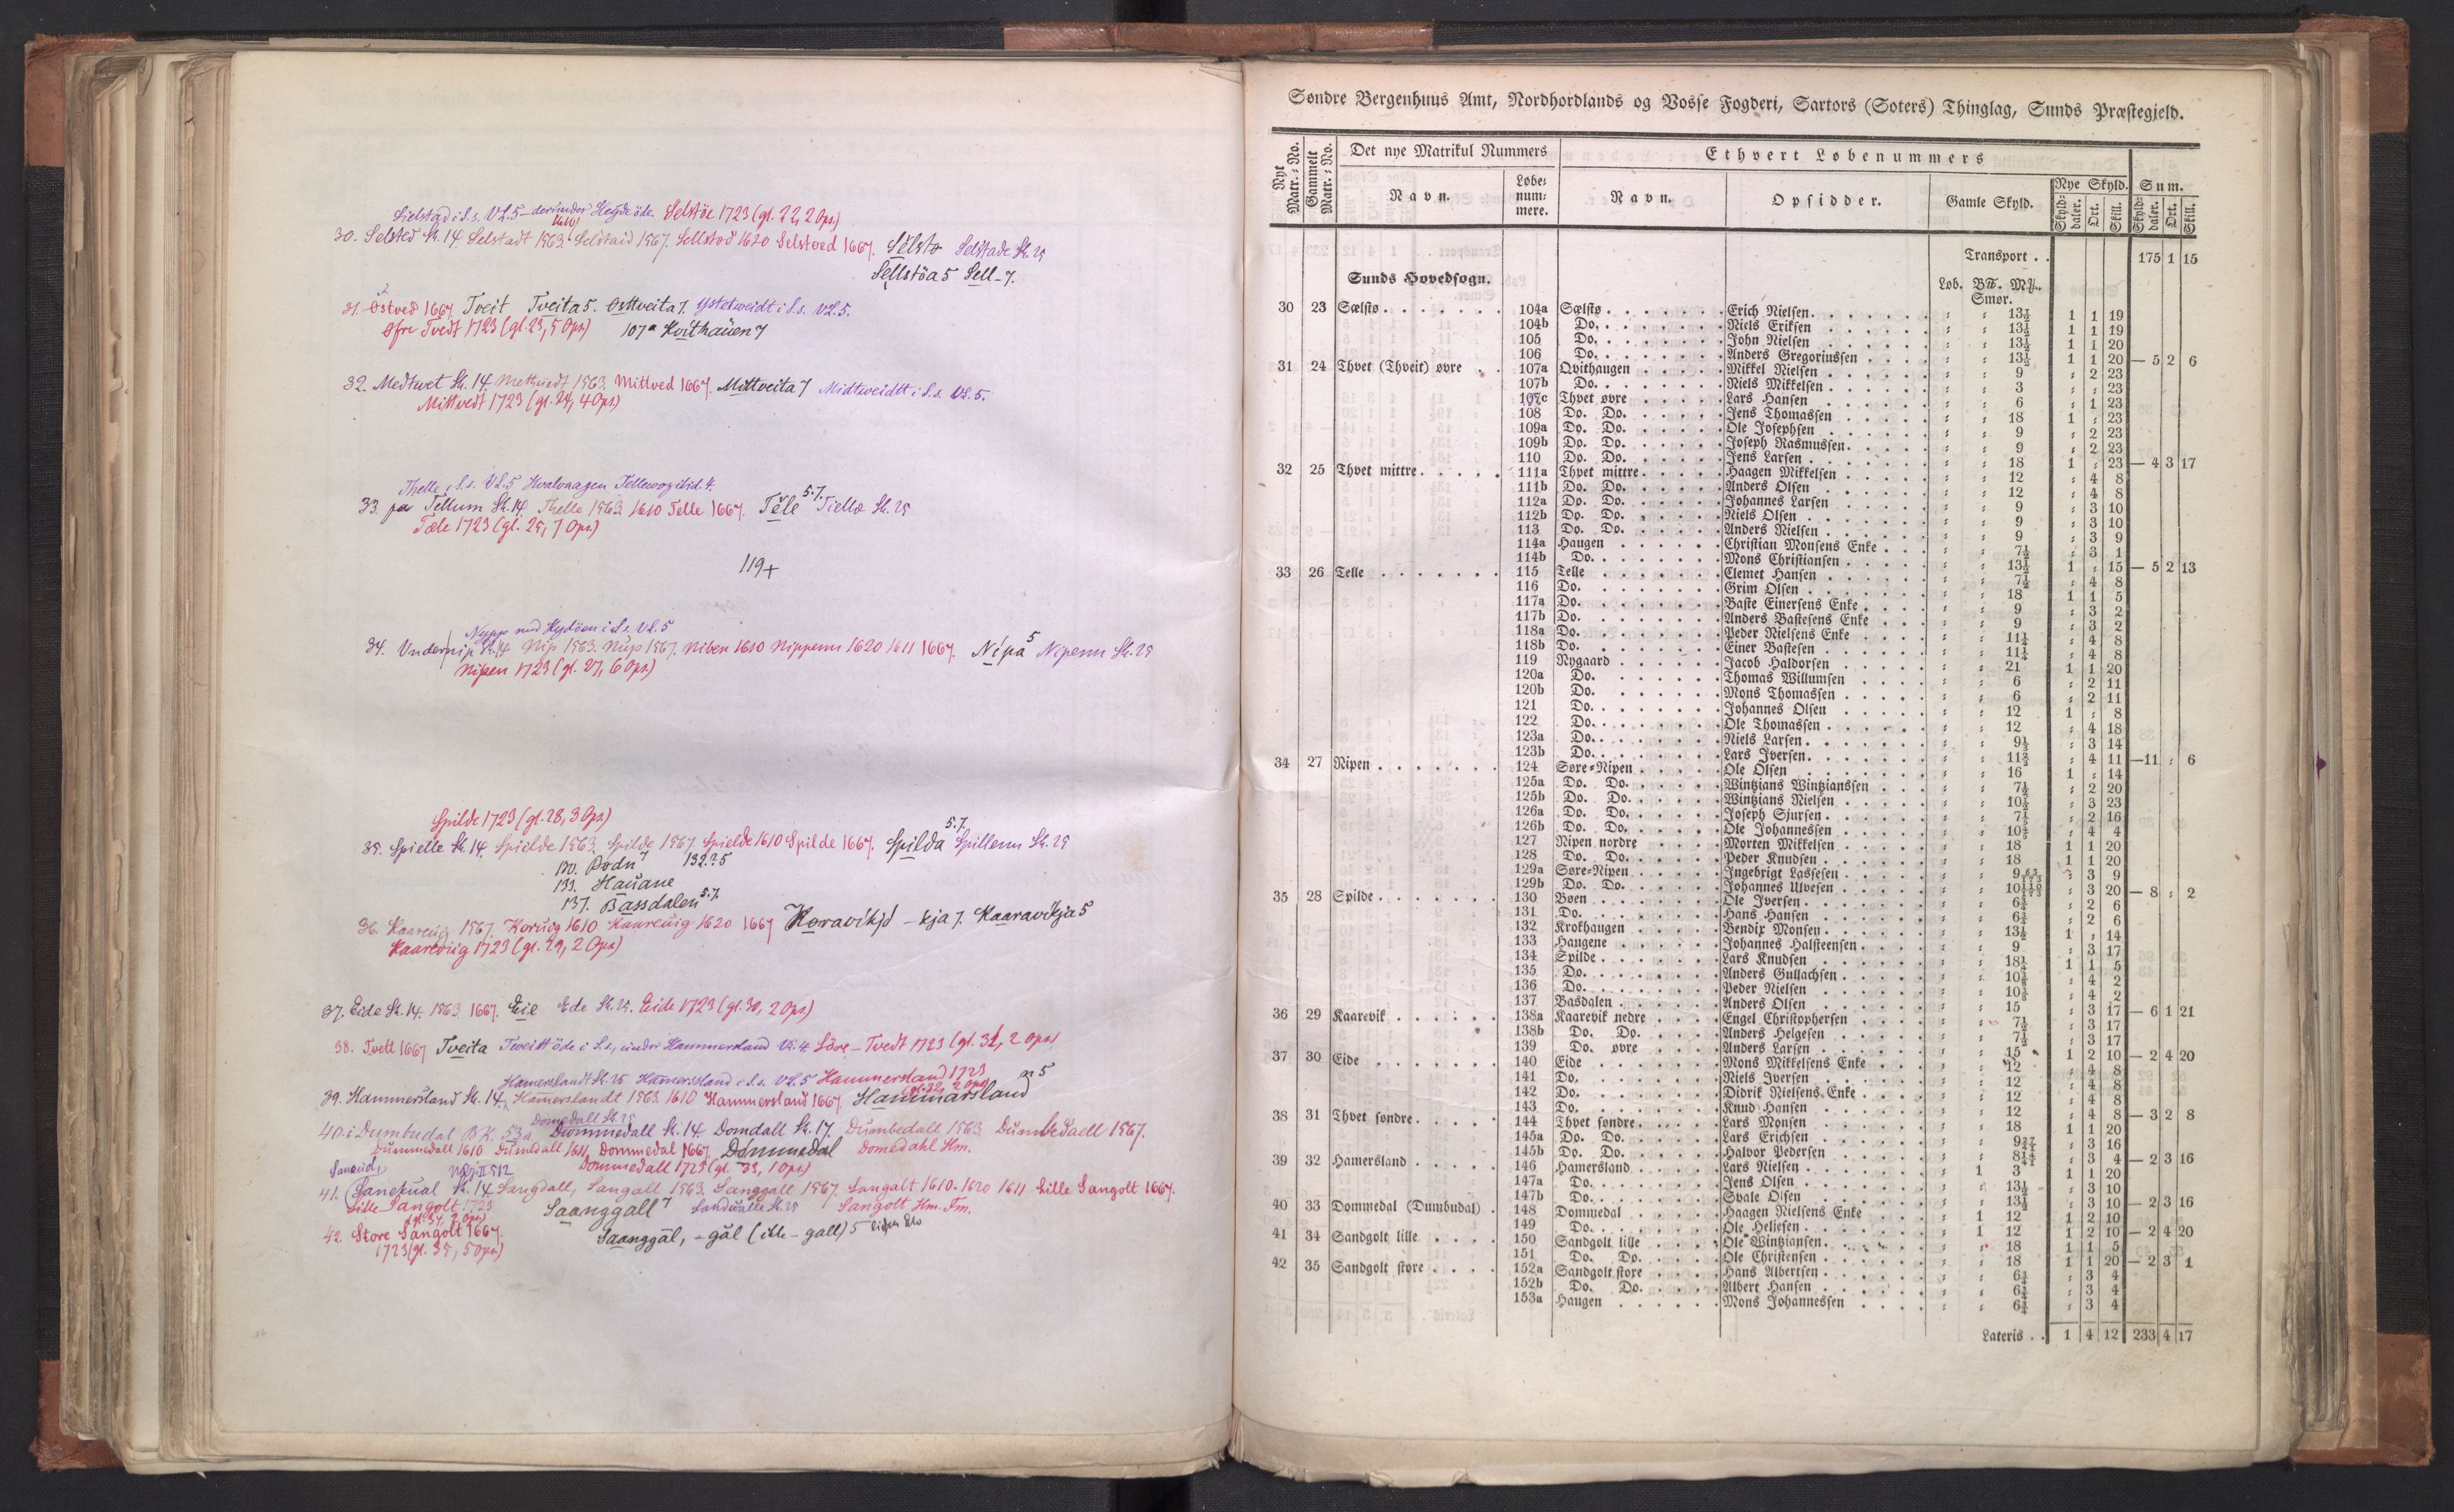 Sielstad i S.s. VL.5 – derunder Heyde öde. Selstöe 1723 (gl. 22, 2 Ops)
30. Selsted St. 14. Selstadt 1563. 1610 Selstaid 1567. Sellstad 1620 Selstoed 1667. Sölsto Selstade St. 25
Sellstöa 5 Sell-7.
31. Östved 1667 Tveit Tveita 5. Østtveita 7. Ystetweidt i S.s. VL.5.
Øfre Tvedt 1723 (gl. 23, 5 Ops) 107a Kvithauen 7
32. Medtwet St. 14. Methuedt 1563. Mittved 1667. Mittveita 7 Midtweidtt i S.s. VL.5.
Mittvedt 1723 (gl. 24, 4 Ops)
Thelle i S.s. VL.5 Hvalvaagen Tellevog ibid. 4.
33. paa Tellum St. 14. Thelle 1563. 1610 Telle 1667. Tele 5.7. Tiello St. 25
Tæle 1723 (gl. 25, 7 Ops)
119+
Nypp med Hydöen i S.s. VL.5
34. Undernip St. 14 Nip 1563. Nup 1567. Niben 1610 Nippenn 1620 1611 1667. Nípa 5 Nipenn St. 25
Nipen 1723 (gl. 27, 6 Ops)
Spilde 1723 (gl. 28, 3 Ops)
35. Spielle St. 14. Spielde 1563. Spilde 1567. Spielde 1610 Spilde 1667. Spilda 5.7. Spillenn St. 25
130. Bødn 7 132.? 5
133. Hauane
137. Bassdalen 5.7.
36. Kaareuig 1567. Koruig 1610 Kaareuig 1620 1667 Koravikjo – kja 7. Kaaravikja 5
Kaarevig 1723 (gl. 29, 2 Ops)
37. Eide St. 14. 1563 1667. Eie Ede St. 25. Eide 1723 (gl. 30, 2 Ops)
38. Tvett 1667 Tveita Tweitt öde i S.s., under Hammersland VL.4. Söre-Tvedt 1723 (gl. 31, 2 Ops)
Hamerslandt St. 25 Hamersland i S.s. VL.5 Hammersland 1723 (gl. 32, 2 Ops)
39. Hammersland St. 14. Hamerslandt 1563. 1610 Hammersland 1667. Hammarsland 5
Domedall St. 25
40. i Dumbudal BK. 53a Dommedall St. 14. Domdall St. 17. Dumbedall 1563. Dumbedaell 1567.
Dummedall 1610 Dumedall 1611 Dommedal 1667. Dommedal Domedahl Hm.
Dommedall 1723 (gl. 33, 1 Ops)
41. St. 14. Sangdall, Sangall 1563. Sanggall 1567. Sangalt 1610. 1620 1611 Lille Sangolt 1667.
Lille Sangolt 1723 (gl. 34, 2 Ops) Saanggall 7 Sandualle St. 25 Sangolt Hm. Fm.
42. Store Sangolt 1667. Saanggål, -gål (ikke -gall) 5
1723 (gl. 35, 5 Ops)
Søndre Bergenhuus Amt, Nordhordlands og Vosse Fogderi, Sartors (Soters) Thinglag, Sunds Præstegjeld.
Nyt Matr.-No. Gammelt Matr.-No. Det nye Matrikul Nummers Ethvert Løbenummers
Navn. Løbenummere. Navn. Opsidder. Gamle Skyld. Nye Skyld. Sum.
Skylddaler. Ort. Skill. Skylddaler. Ort. Skill.
Transport . . 175 1 15
Sunds Hovedsogn. Løb. B℔. M℔. Smør.
30 23 Sælstø 104a Sælstø Erich Nielsen 13½ 1 1 19
104b Do. Niels Eriksen 13½ 1 1 19
105 Do. John Nielsen 13½ 1 1 20
106 Do. Anders Gregoriussen 13½ 1 1 20 — 5 2 6
31 24 Thvet (Thveit) øvre 107a Qvithaugen Mikkel Nielsen 9 : 2 23
107b Do. Niels Mikkelsen 3 : : 23
107c Thvet øvre Lars Hansen 6 : 1 23
108 Do. Do. Jens Thomassen 18 1 : 23
109a Do. Do. Ole Josephsen 9 : 2 23
109b Do. Do. Joseph Rasmussen 9 : 2 23
110 Do. Do. Jens Larsen 18 1 : 23 — 4 3 17
32 25 Thvet mittre 111a Thvet mittre Haagen Mikkelsen 12 : 4 8
111b Do. Do. Anders Olsen 12 : 4 8
112a Do. Do. Johannes Larsen 9 : 3 10
112b Do. Do. Niels Olsen 9 : 3 10
113 Do. Do. Anders Nielsen 9 : 3 9
114a Haugen Christian Monsens Enke 7½ : 3 1
114b Do. Mons Christiansen 13½ 1 : 15 — 5 2 13
33 26 Telle 115 Telle Clemet Hansen 7½ : 4 8
116 Do. Grim Olsen 18 1 1 5
117a Do. Baste Einersens Enke 9 : 3 2
117b Do. Anders Bastesens Enke 9 : 3 2
118a Do. Peder Nielsens Enke 11¼ : 4 8
118b Do. Einer Bastesen 11¼ : 4 8
119 Nygaard Jacob Haldorsen 21 1 1 20
120a Do. Thomas Willumsen 6 : 2 11
120b Do. Mons Thomassen 6 : 2 11
121 Do. Johannes Olsen 12 1 : 8
122 Do. Ole Thomassen 12 : 4 18
123a Do. Niels Larsen 9⅓ : 3 14
123b Do. Lars Iversen 11⅔ : 4 11 —11 : 6
34 27 Nipen 124 Søre-Nipen Ole Olsen 16 1 : 14
125a Do. Do. Wintzians Wintzianssen 7½ : 2 20
125b Do. Do. Wintzians Nielsen 10½ : 3 23
126a Do. Do. Joseph Sjursen : 2 16
126b Do. Do. Ole Johannessen : 4 4
127 Nipen nordre Morten Mikkelsen 18 1 1 20
128 Do. Do. Peder Knudsen 18 1 1 20
129a Søre-Nipen Ingebrigt Lassesen : 3 9
129b Do. Do. Johannes Ulvesen : 3 20 — 8 : 2
35 28 Spilde 130 Bøen Ole Iversen 6¾ : 2 6
131 Do. Hans Hansen 6¾ : 2 6
132 Krokhaugen Bendix Monsen 13½ 1 : 14
133 Haugene Johannes Halsteensen 9 : 3 17
134 Spilde Lars Knudsen 18¼ 1 1 5
135 Do. Anders Gullachsen : 4 2
136 Do. Peder Nielsen : 4 2
137 Basdalen Anders Olsen 15 : 3 17 — 6 1 21
36 29 Kaarevik 138a Kaarevik nedre Engel Christophersen 7½ : 3 17
138b Do. Do. Anders Helgesen 7½ : 3 17
139 Do. øvre Anders Larsen 15 1 2 10 — 2 4 20
37 30 Eide 140 Eide Mons Mikkelsens Enke 12 : 4 8
141 Do. Niels Iversen 12 : 4 8
142 Do. Didrik Nielsens Enke 12 : 4 8
143 Do. Knud Hansen 12 : 4 8 — 3 2 8
38 31 Thvet søndre 144 Thvet søndre Lars Monsen 18 1 1 20
145a Do. Do. Lars Erichsen : 3 16
145b Do. Do. Halvor Pedersen : 3 4 — 2 3 16
39 32 Hamersland 146 Hamersland Lars Nielsen 1 3 1 1 20
147a Do. Jens Olsen 13½ : 3 10
147b Do. Svale Olsen 13½ : 3 10 — 2 3 16
40 33 Dommedal (Dumbudal) 148 Dommedal Haagen Nielsens Enke 1 12 1 2 10
149 Do. Ole Heliesen 1 12 1 2 10 — 2 4 20
41 34 Sandgolt lille 150 Sandgolt lille Ole Wintziansen 18 1 1 5
151 Do. Do. Ole Christensen 18 1 1 20 — 2 3 1
42 35 Sandgolt store 152a Sandgolt store Hans Albertsen 6¾ : 3 4
152b Do. Do. Albert Hansen 6¾ : 3 4
153a Haugen Mons Johannessen 6¾ : 3 4
Lateris . . 1 4 12 233 4 17